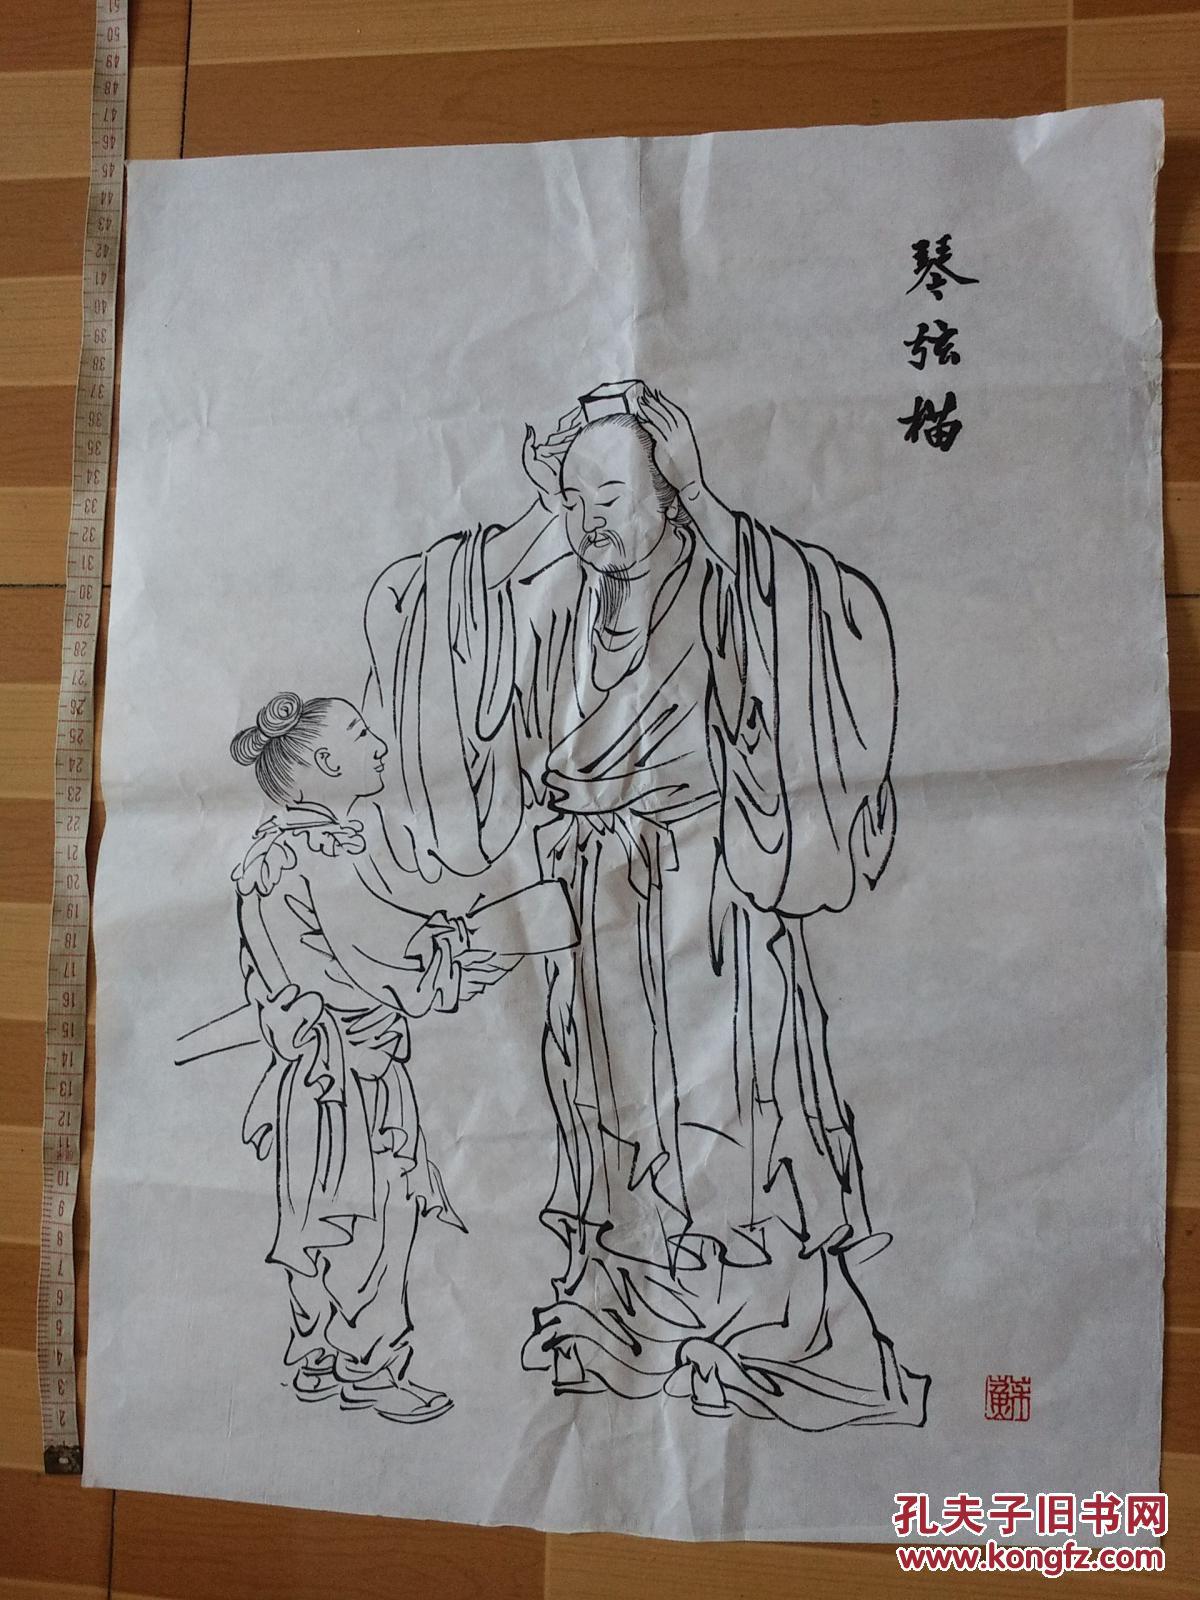 琴弦描
51
50
49
48
47
46
45
44
43
42
41
40
39
38
37
36
35
34
33
32
31
30
29
28
27
26
25
24
23
22
21
20
19
18
17
16
15
14
13
12
11
10
9
8
7
6
5
4
3
2
孔夫子旧书网
www.kongfz.com